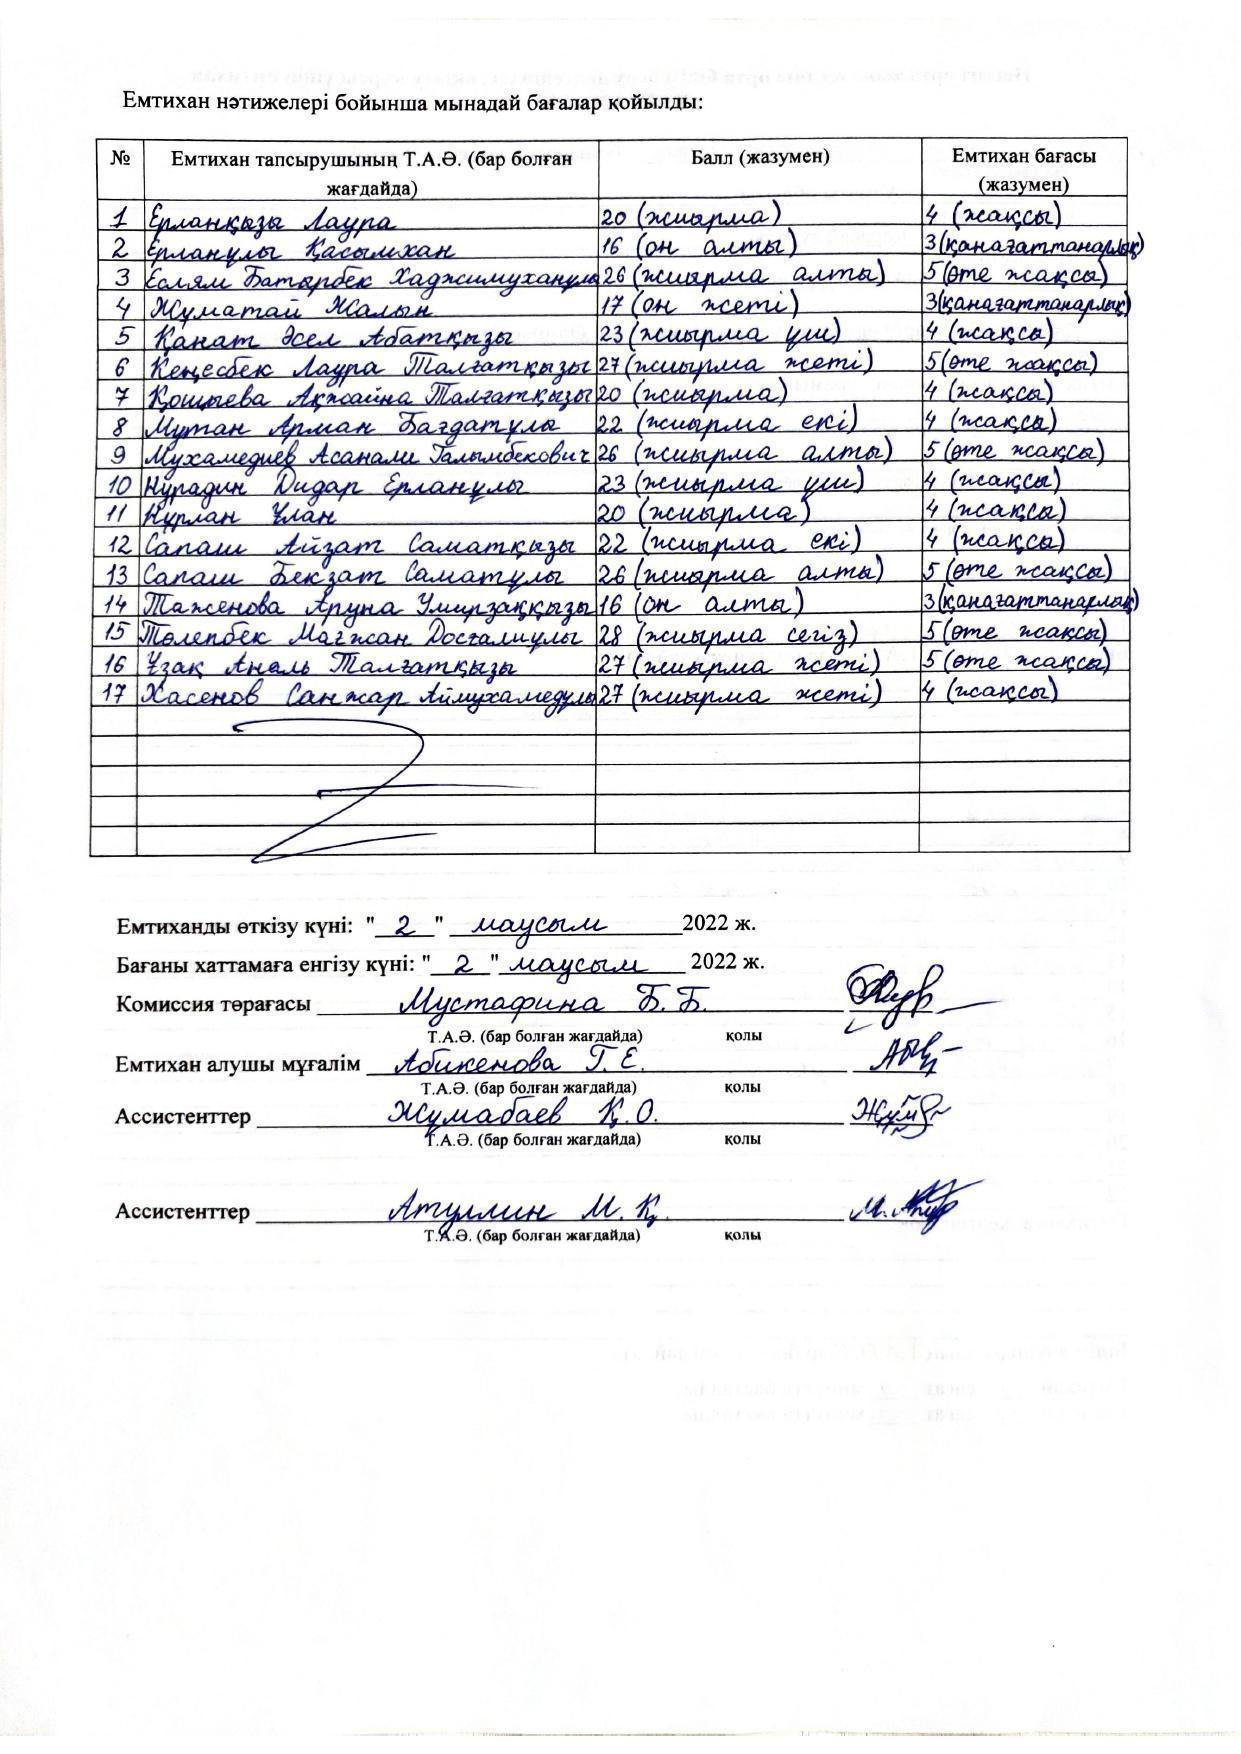 Емтихан нәтижелері бойынша мынадай бағалар қойылды:
№ Емтихан тапсырушының Т.А.Ә. (бар болған жағдайда) Балл (жазумен) Емтихан бағасы (жазумен)
1 Ерланқызы Лаура 20 (жиырма) 4 (жақсы)
2 Ерланұлы Қасымхан 16 (он алты) 3 (қанағаттанарлық)
3 Еслям Батырбек Хаджимуханұлы 26 (жиырма алты) 5 (өте жақсы)
4 Жұматай Жалын 17 (он жеті) 3 (қанағаттанарлық)
5 Қанат Әсел Абатқызы 23 (жиырма үш) 4 (жақсы)
6 Кеңесбек Лаура Талғатқызы 27 (жиырма жеті) 5 (өте жақсы)
7 Қошыева Ақжайна Талғатқызы 20 (жиырма) 4 (жақсы)
8 Мутан Арман Бағдатұлы 22 (жиырма екі) 4 (жақсы)
9 Мухамедиев Асанали Ғалымбекович 26 (жиырма алты) 5 (өте жақсы)
10 Нұрадин Дидар Ерланұлы 23 (жиырма үш) 4 (жақсы)
11 Нұрлан Ұлан 20 (жиырма) 4 (жақсы)
12 Сапаш Айзат Саматқызы 22 (жиырма екі) 4 (жақсы)
13 Сапаш Бекзат Саматұлы 26 (жиырма алты) 5 (өте жақсы)
14 Таженова Аруна Умирзаққызы 16 (он алты) 3 (қанағаттанарлық)
15 Төлепбек Мағжан Досғалиұлы 28 (жиырма сегіз) 5 (өте жақсы)
16 Ұзақ Аналь Талғатқызы 27 (жиырма жеті) 5 (өте жақсы)
17 Хасенов Санжар Аймухамедұлы 27 (жиырма жеті) 4 (жақсы)
Емтиханды өткізу күні: "2" маусым 2022 ж.
Бағаны хаттамаға енгізу күні: "2" маусым 2022 ж.
Комиссия төрағасы Мустафина Б.Б.
Т.А.Ә. (бар болған жағдайда) қолы
Емтихан алушы мұғалім Абикенова Г.Е.
Т.А.Ә. (бар болған жағдайда) қолы
Ассистенттер Жұмабаев Қ.О.
Т.А.Ә. (бар болған жағдайда) қолы
Ассистенттер Атуллин М.Қ.
Т.А.Ә. (бар болған жағдайда) қолы